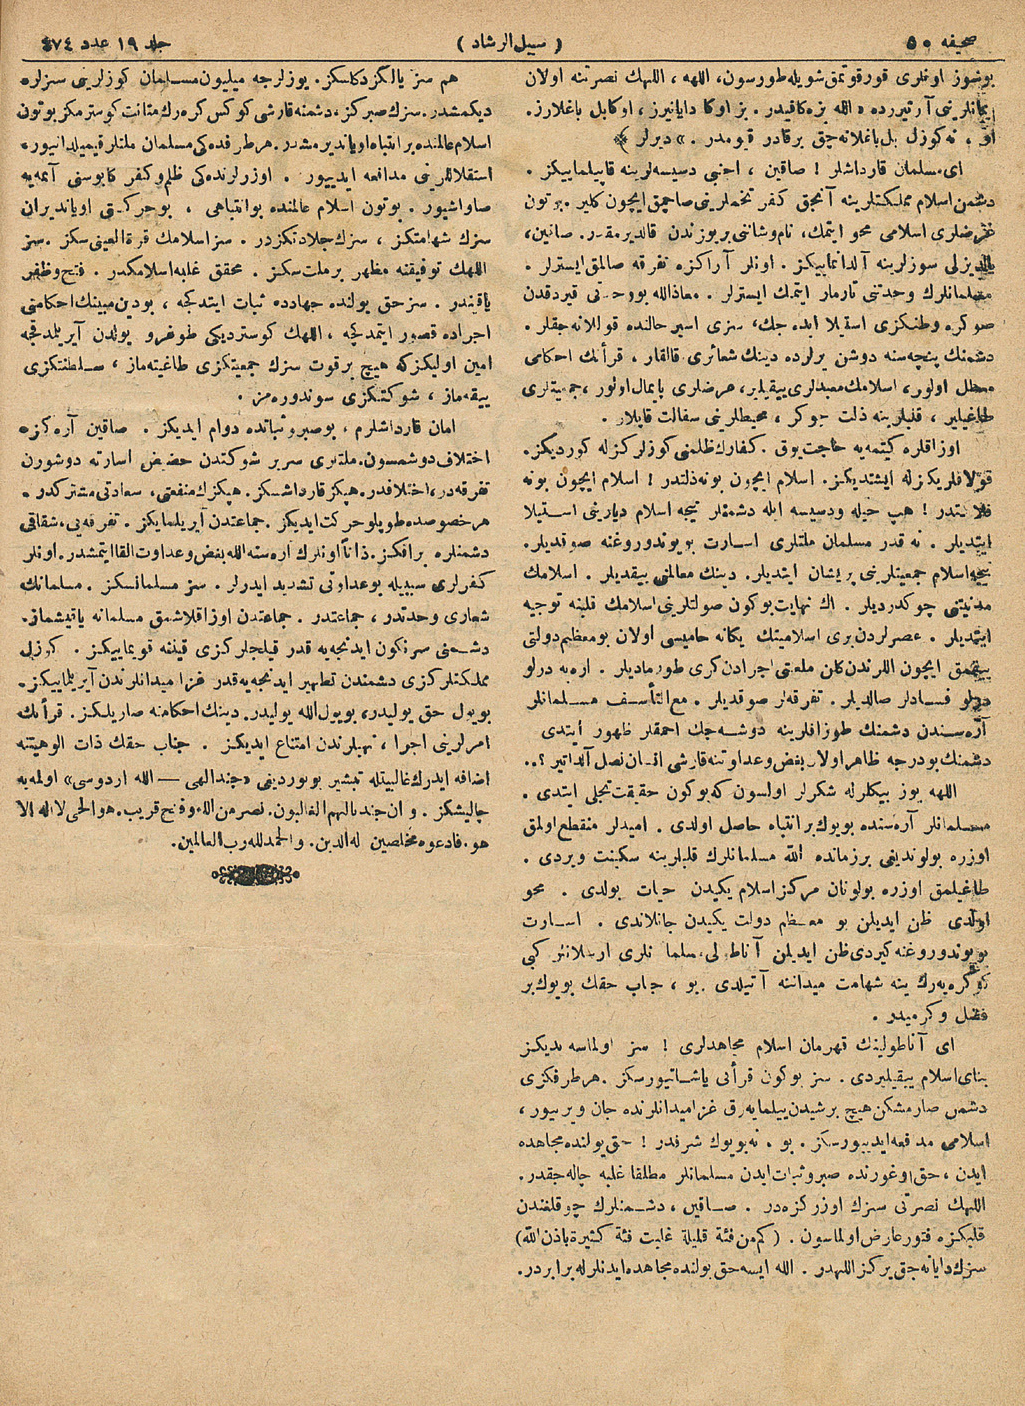 صحيفه ٥٠
( سبيل الرشاد )
جلد ١٩ عدد ٤٧٤
بوسوز اونلرى قورقوتمق شويله طورسون، اللهه ، اللهك نصرتنه اولان
ايمانلرينى آرتيررده « الله بزه كافيدر . بز اوكا دايانيرز ، اوكا بل باغلارز.
او ، نه كوزل بل باغلانه جق برقادر قيومدر . » ديرلر ﴾
اى مسلمان قارداشلر ! صاقين ، اجنبى دسيسه لرينه قاپيلماييكز .
دشمن اسلام مملكتلرينه آنجق كفر تخملرينى صاچمق ايچون كلير . بوتون
غرضلرى اسلامى محو ايتمك ، نام وشاننى ير يوزندن قالديرمقدر . صاقين،
يالديزلى سوزلرينه آلدانماييكز . اونلر آراكزه تفرقه صالمق ايسترلر .
مسلمانلرك وحدتنى تارمار ايتمك ايسترلر . معاذالله بو وحدتى قيردقدن
صوكره وطنكزى استيلا ايده جك، سزى اسير حالنده قوللانه جقلر .
دشمنك پنچه سنه دوشن يرلرده دينك شعائرى قالقار ، قرآنك احكامى
معطل اولور، اسلامك معبدلرى ييقيلير، عرضلرى پايمال اولور ، جمعيتلرى
طاغيلير ، قلبلرينه ذلت چوكر ، محيطلرينى سفالت قاپلار .
اوزاقلره كيتمه يه حاجت يوق . كفارك ظلمنى كوزلركزله كورديكز.
قولاقلريكزله ايشتديكز. اسلام ايچون بو نه ذلتدر ! اسلام ايچون بو نه
فلاكتدر ! هپ حيله ودسيسه ايله دشمنلر نيجه اسلام ديارينى استيلا
ايتديلر . نه قدر مسلمان ملتلرى اسارت بويوندوروغنه صوقديلر .
نيجه اسلام جمعيتلرينى پريشان ايتديلر . دينك معالمنى ييقديلر . اسلامك
مدنيتنى چوكدرديلر . اك نهايت بوكون صولتلرينى اسلامك قلبنه توجيه
ايتديلر . عصرلردن برى اسلاميتك يكانه حاميسى اولان بو معظم دولتى
ييقمق ايچون اللرندن كلن ملعنتى اجرادن كرى طورماديلر . آره يه درلو
درلو فسادلر صالديلر . تفرقه لر صوقديلر . مع التأسف مسلمانلر
آره سندن دشمنك طوزاقلرينه دوشه جك احمقلر ظهور ايتدى
دشمنك بو درجه ظاهر اولان بغض وعداوتنه قارشى انسان نصل آلدانير ؟..
اللهه يوز بيكلرله شكرلر اولسون كه بوكون حقيقت تجلى ايتدى .
مسلمانلر آره سنده بويوك بر انتباه حاصل اولدى . اميدلر منقطع اولمق
اوزره بولونديغى بر زمانده الله مسلمانلرك قلبلرينه سكينت ويردى .
طاغيلمق اوزره بولونان مركز اسلام يكيدن حيات بولدى . محو
اولدى ظن ايديلن بو معظم دولت يكيدن جانلاندى . اسارت
بويوندوروغنه كيردى ظن ايديلن آناطولى مسلمانلرى ارسلانلر كبى
كوكره يه رك ينه شهامت ميداننه آتيلدى . بو ، جناب حقك بويوك بر
فضل وكرميدر .
اى آناطولينك قهرمان اسلام مجاهدلرى ! سز اولماسه يديكز
بناى اسلام ييقيليردى . سز بوكون قرآنى ياشاتيورسكز . هر طرفكزى
دشمن صارمشكن هيچ بر شيدن ييلمايه رق غزا ميدانلرنده جان ويرييور ،
اسلامى مدافعه ايدييورسكز . بو ، نه بويوك شرفدر ! حق يولنده مجاهده
ايدن ، حق اوغورنده صبر وثبات ايدن مسلمانلر مطلقا غلبه چاله جقدر .
اللهك نصرتى سزك اوزركزه در . صاقين ، دشمنلرك چوقلغندن
قلبكزه فتور عارض اولماسون . (كم من فئة قليلة غلبت فئة كثيرة باذن الله)
سزك دايانه جق يركز اللهدر . الله ايسه حق يولنده مجاهده ايدنلرله برابردر.
هم سز يالكز دكلسكز. يوزلرجه ميليون مسلمان كوزلرينى سزلره
ديكمشدر . سزك صبركز ، دشمنه قارشى كوكس كره رك متانت كوسترمكز بوتون
اسلام عالمنده بر انتباه اوياندير مشدر . هر طرفده كى مسلمان ملتلر قيميلدانيور،
استقلاللرينى مدافعه ايدييور . اوزرلرنده كى ظلم وكفر كابوسنى آتمه يه
صاواشيور . بوتون اسلام عالمنده بو انتباهى ، بو حركتى اويانديران
سزك شهامتكز ، سزك جلادتكزدر . سز اسلامك قرة العينى سكز . سز
اللهك توفيقنه مظهر بر ملت سكز . محقق غلبه اسلامكدر . فتح وظفر
ياقيندر . سز حق يولنده جهادده ثبات ايتدكجه ، بو دين مبينك احكامنى
اجراده قصور ايتمدكجه ، اللهك كوسترديكى طوغرو يولدن آيريلمدقجه
امين اوليكز كه هيچ بر قوت سزك جمعيتكزى طاغيته ماز ، سلطنتكزى
ييقه ماز ، شوكتكزى سوندوره مز .
امان قارداشلرم ، بو صبر وثباتده دوام ايديكز . صاقين آره كزه
اختلاف دوشمسون. ملتلرى سرير شوكتدن حضيض اسارته دوشورن
تفرقه در ، اختلافدر. هپكز قارداشسكز. هپكزك منفعتى ، سعادتى مشتركدر .
هر خصوصده طوپلو حركت ايديكز . جماعتدن آيريلمايكز . تفرقه يى ، شقاقى
دشمنلره براقكز . ذاتاً اونلرك آره سنه الله بغض وعداوت القا ايتمشدر . اونلر
كفرلرى سببيله بو عداوتى تشديد ايدرلر . سز مسلمانسكز . مسلمانك
شعارى وحدتدر ، جماعتدر . جماعتدن اوزاقلاشمق مسلمانه ياقيشماز.
دشمنى سرنكون ايدنجه يه قدر قيلجلركزى قيننه قويماييكز . كوزل
مملكتلركزى دشمندن تطهير ايدنجه يه قدر غزا ميدانلرندن آيريلماييكز .
بو يول حق يوليدر ، بو يول الله يوليدر . دينك احكامنه صاريلكز . قرآنك
امرلرينى اجرا ، نهيلرندن امتناع ايديكز . جناب حقك ذات الوهيتنه
اضافه ايدرك غالبيتله تبشير بويورديغى «جند الهى — الله اردوسى» اولمه يه
چاليشكز . و ان جندنا لهم الغالبون. نصر من الله وفتح قريب. هو الحى لا اله الا
هو. فادعوه مخلصين له الدين. و الحمد لله رب العالمين.